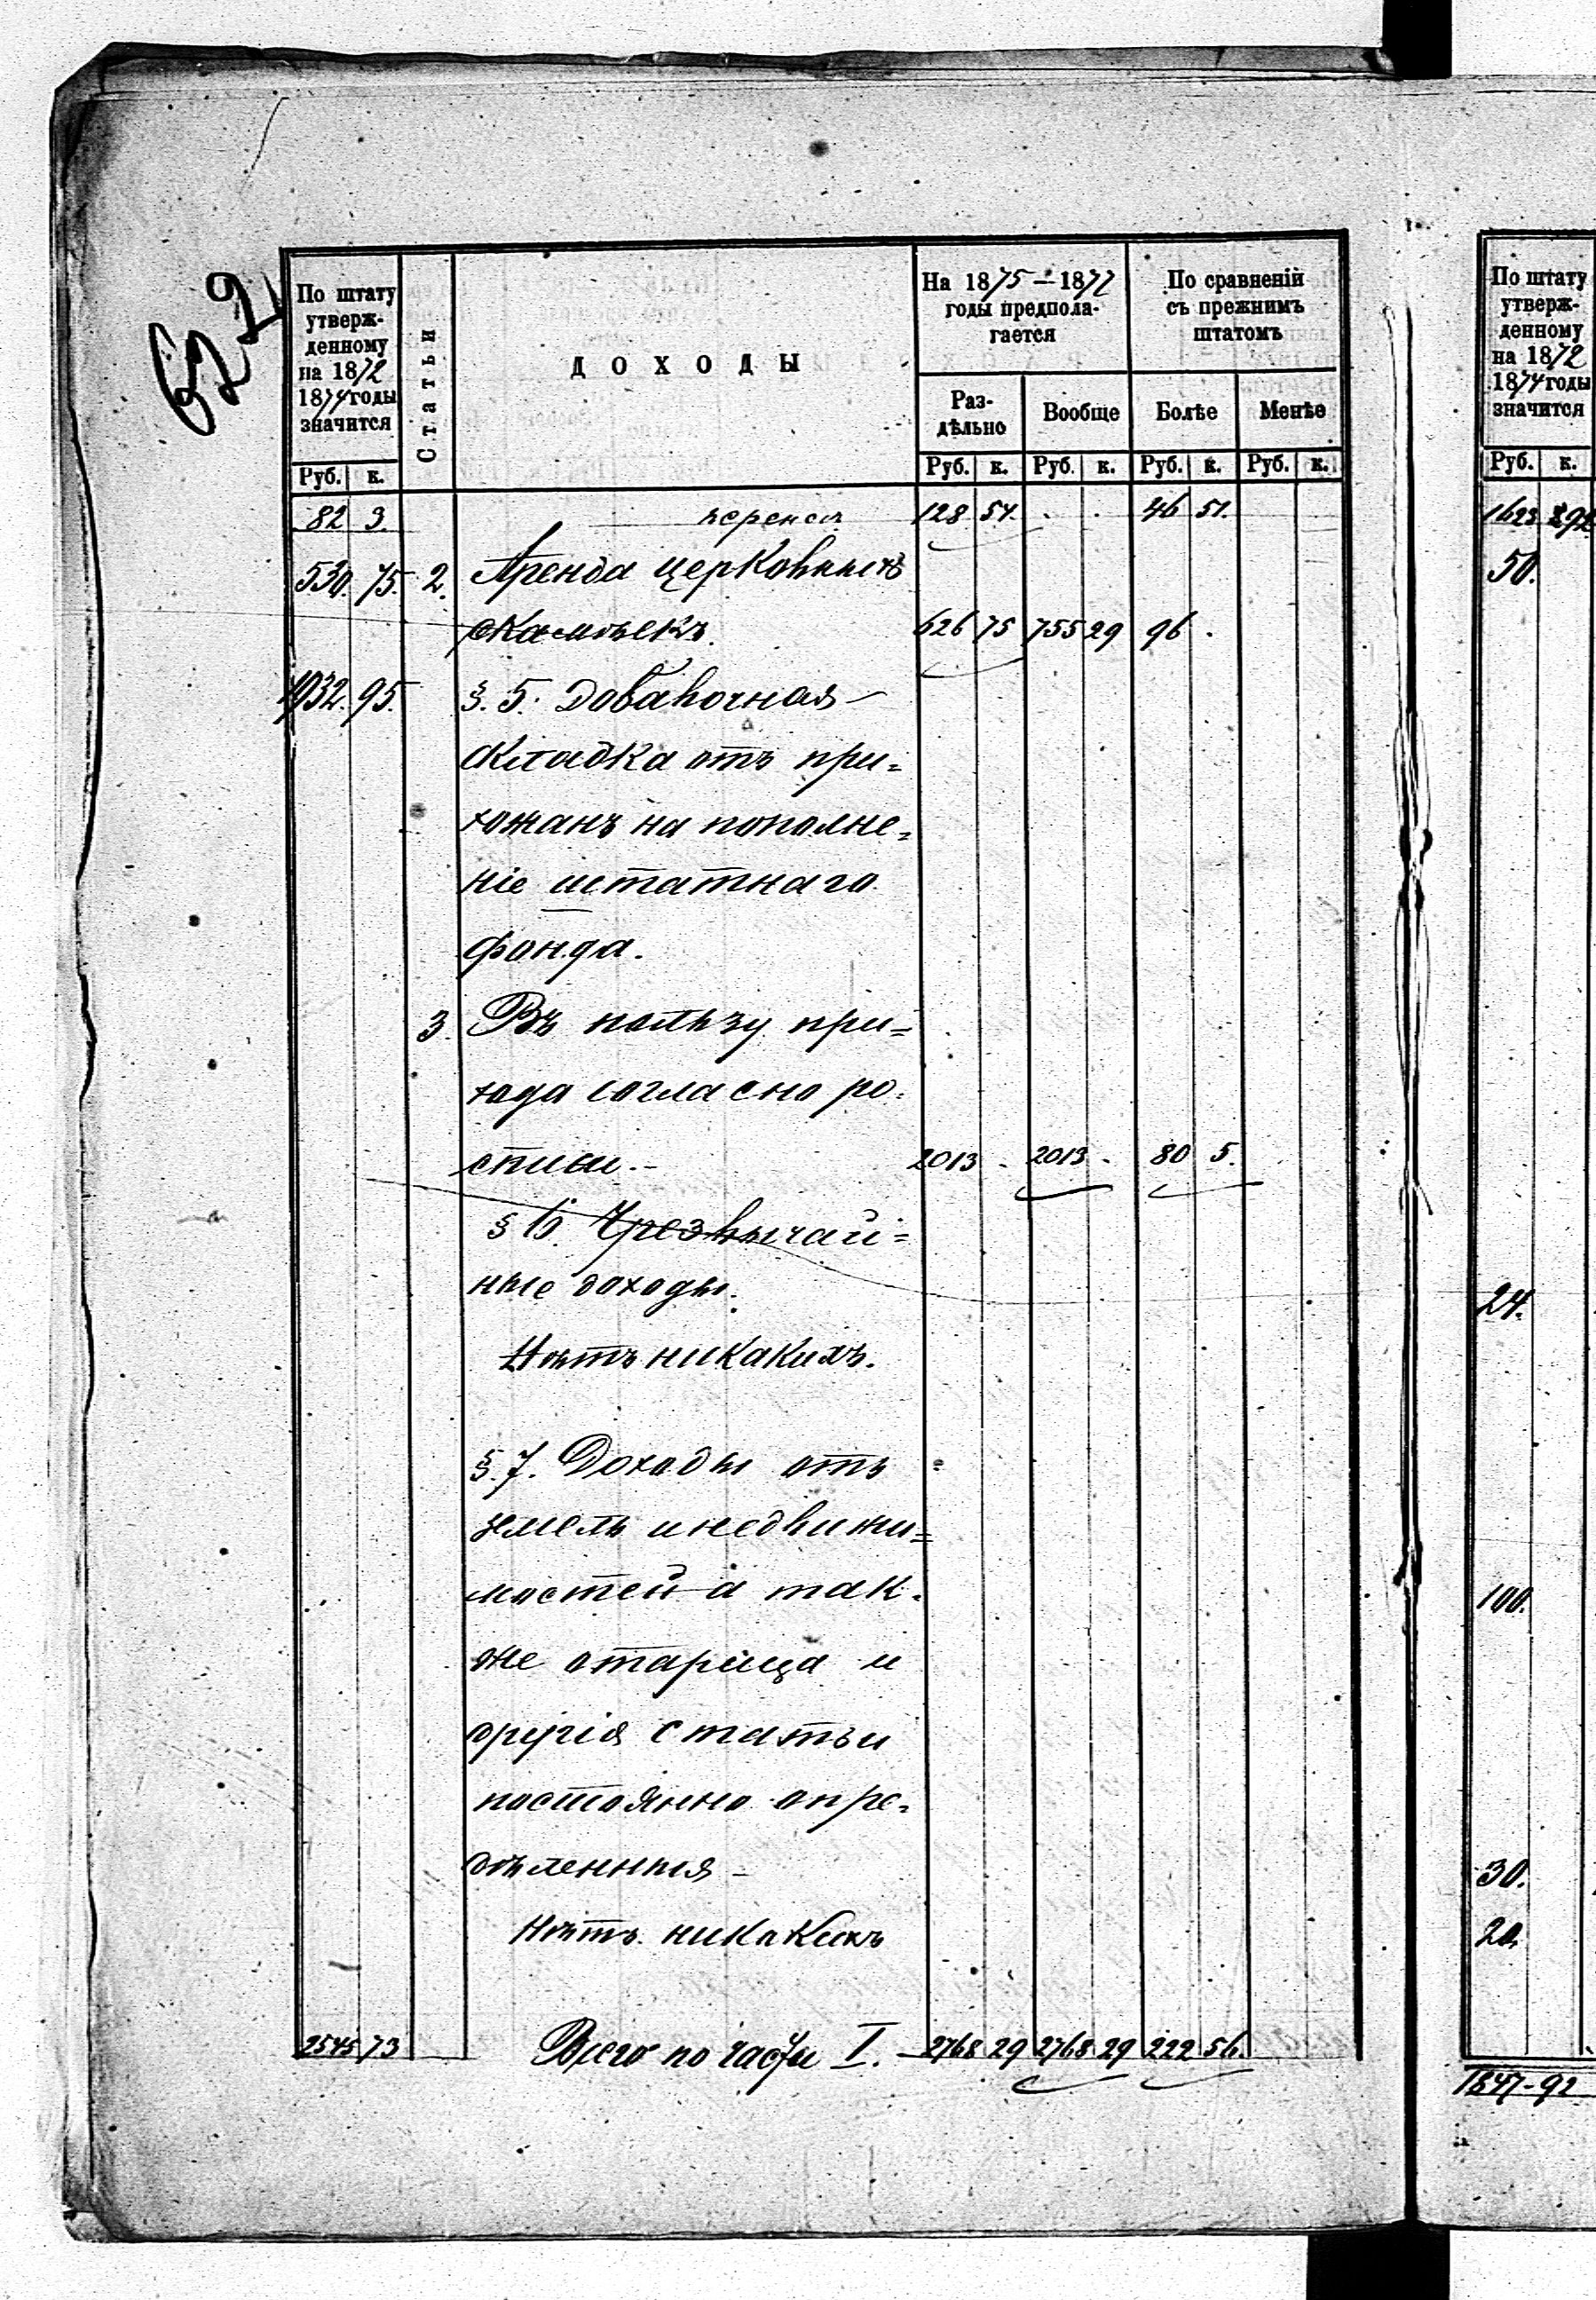 622
По штату
утверж-
денному
на 1872
1874 годы
значится
Статьи
ДОХОДЫ
На 1875 – 1877
годы предпола-
гается
По сравненій
съ прежнимъ
штатомъ
Раз-
дѣльно
Вообще
Болѣе
Менѣе
Руб. к. Руб. к. Руб. к. Руб. к. Руб. к.
82 3. переносъ 128 54. . . 46 51.
530. 75. 2. Аренда церковныхъ
скамѣекъ. 626 75 755 29 96 .
1932. 95. §. 5. Добавочная
складка отъ при=
хожанъ на пополне=
ніе штатнаго
фонда.
3. Въ пользу при=
хода согласно ро=
списи. – 2013 . 2013 . 80 5.
§ 6. Чрезвычай=
ные доходы.
Нѣтъ никакихъ.
§. 7. Доходы отъ
земель и недвижи=
мостей а так=
же
и
другія статьи
постоянно опре=
дѣленныя –
Нѣтъ никакихъ
2545 73 Всего по части I. – 2768 29 2768 29 222 56.
По штату
утверж-
денному
на 1872
1874 годы
значится
Руб. к.
1623
50.
24.
100.
30.
20.
1847-92